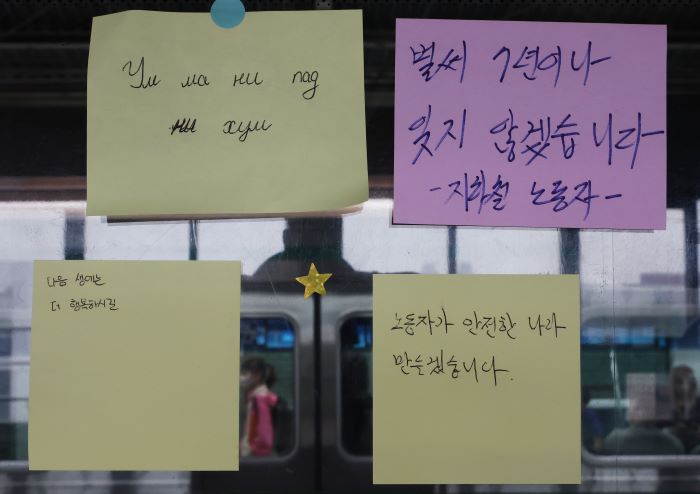 Ум ма ни пад
ни хум
벌써 7년이나
잊지 않겠습니다
-지하철 노동자-
다음 생에는
더 행복하시길
노동자가 안전한 나라
만들겠습니다.